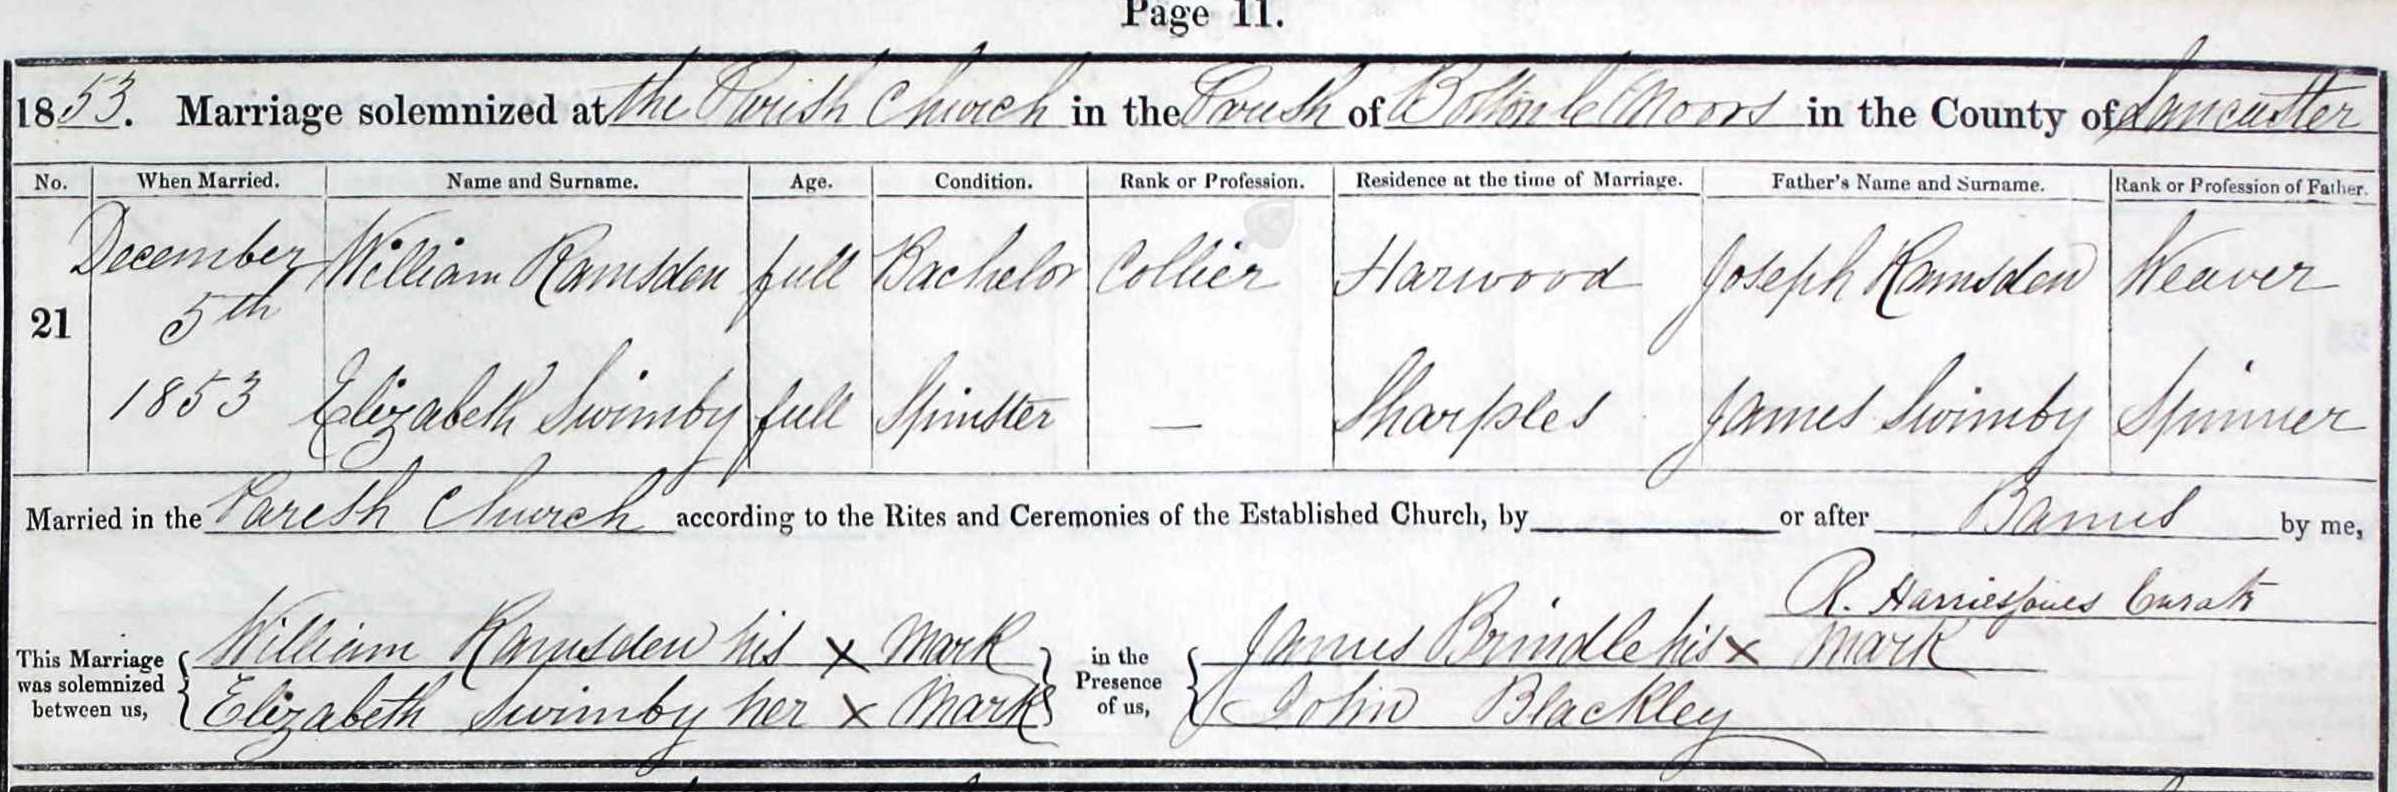 Page 11.
1853. Marriage solemnized at the Parish Church in the Parish of Bolton le Moors in the County of Lancaster
No. When Married. Name and Surname. Age. Condition. Rank or Profession. Residence at the time of Marriage. Father's Name and Surname. Rank or Profession of Father.
December William Ramsden full Bachelor Collier Harwood Joseph Ramsden Weaver
21 5th
1853 Elizabeth Swimby full Spinster — Sharples James Swimby Spinner
Married in the Parish Church according to the Rites and Ceremonies of the Established Church, by or after Banns by me,
R. Harries Jones Curate
This Marriage was solemnized between us, William Ramsden his x Mark in the Presence of us, James Brindle his x Mark
Elizabeth Swimby her x Mark John Blackley